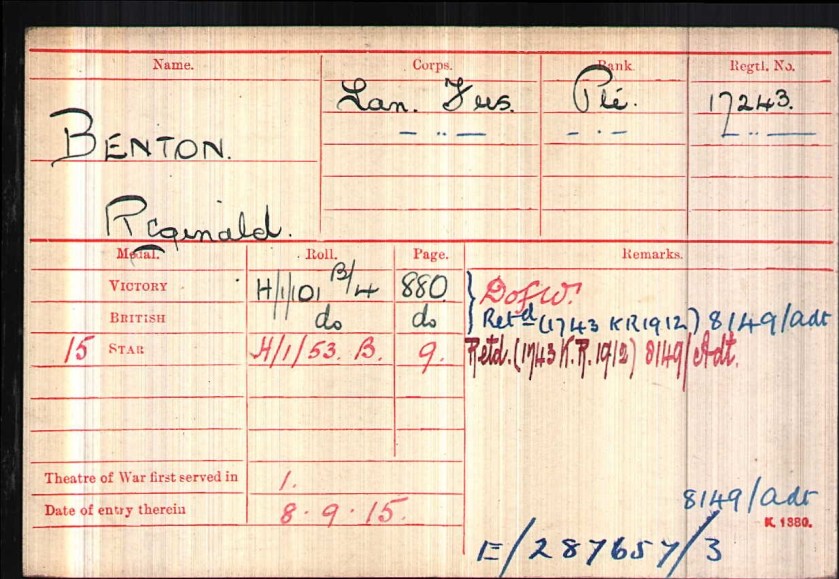 Name. Corps. Rank. Regtl. No.
BENTON. Lan. Fus. Pte. 17243.
— " — — " — — " —
Reginald.
Medal. Roll. Page. Remarks.
VICTORY H/1/101 B/4 880 D of W.
BRITISH do do Retd (1743 KR1912) 8149/adt
15 STAR H/1/53. B. 9. Retd. (1743 K.R. 1912) 8149/Adt.
Theatre of War first served in 1.
Date of entry therein 8.9.15.
8149/adt
K. 1380.
E/287657/3